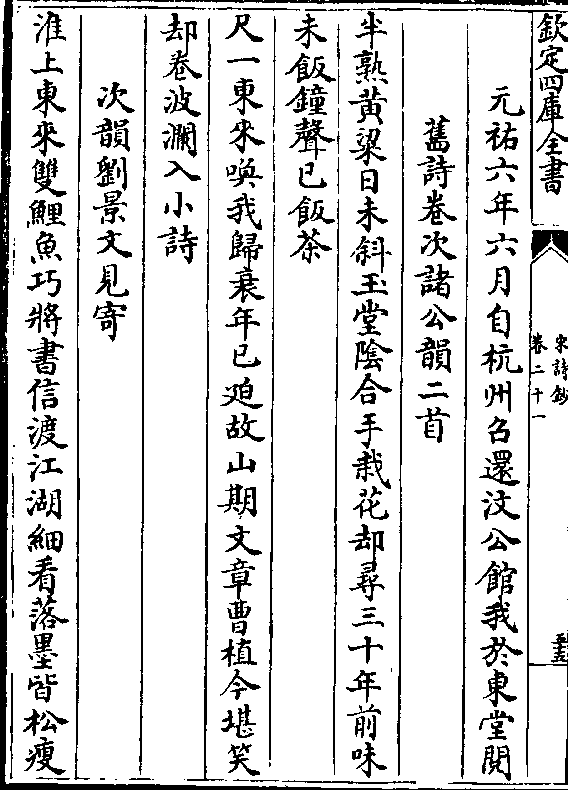 欽定四庫全書
宋詩鈔
卷二十一
元祐六年六月自杭州召還汶公館我於東堂閱
舊詩卷次諸公韻二首
半熟黃粱日未斜玉堂陰合手栽花却尋三十年前味
未飯鐘聲已飯茶
尺一東來喚我歸衰年已迫故山期文章曹植今堪笑
却卷波瀾入小詩
次韻劉景文見寄
淮上東來雙鯉魚巧將書信渡江湖細看落墨皆松瘦